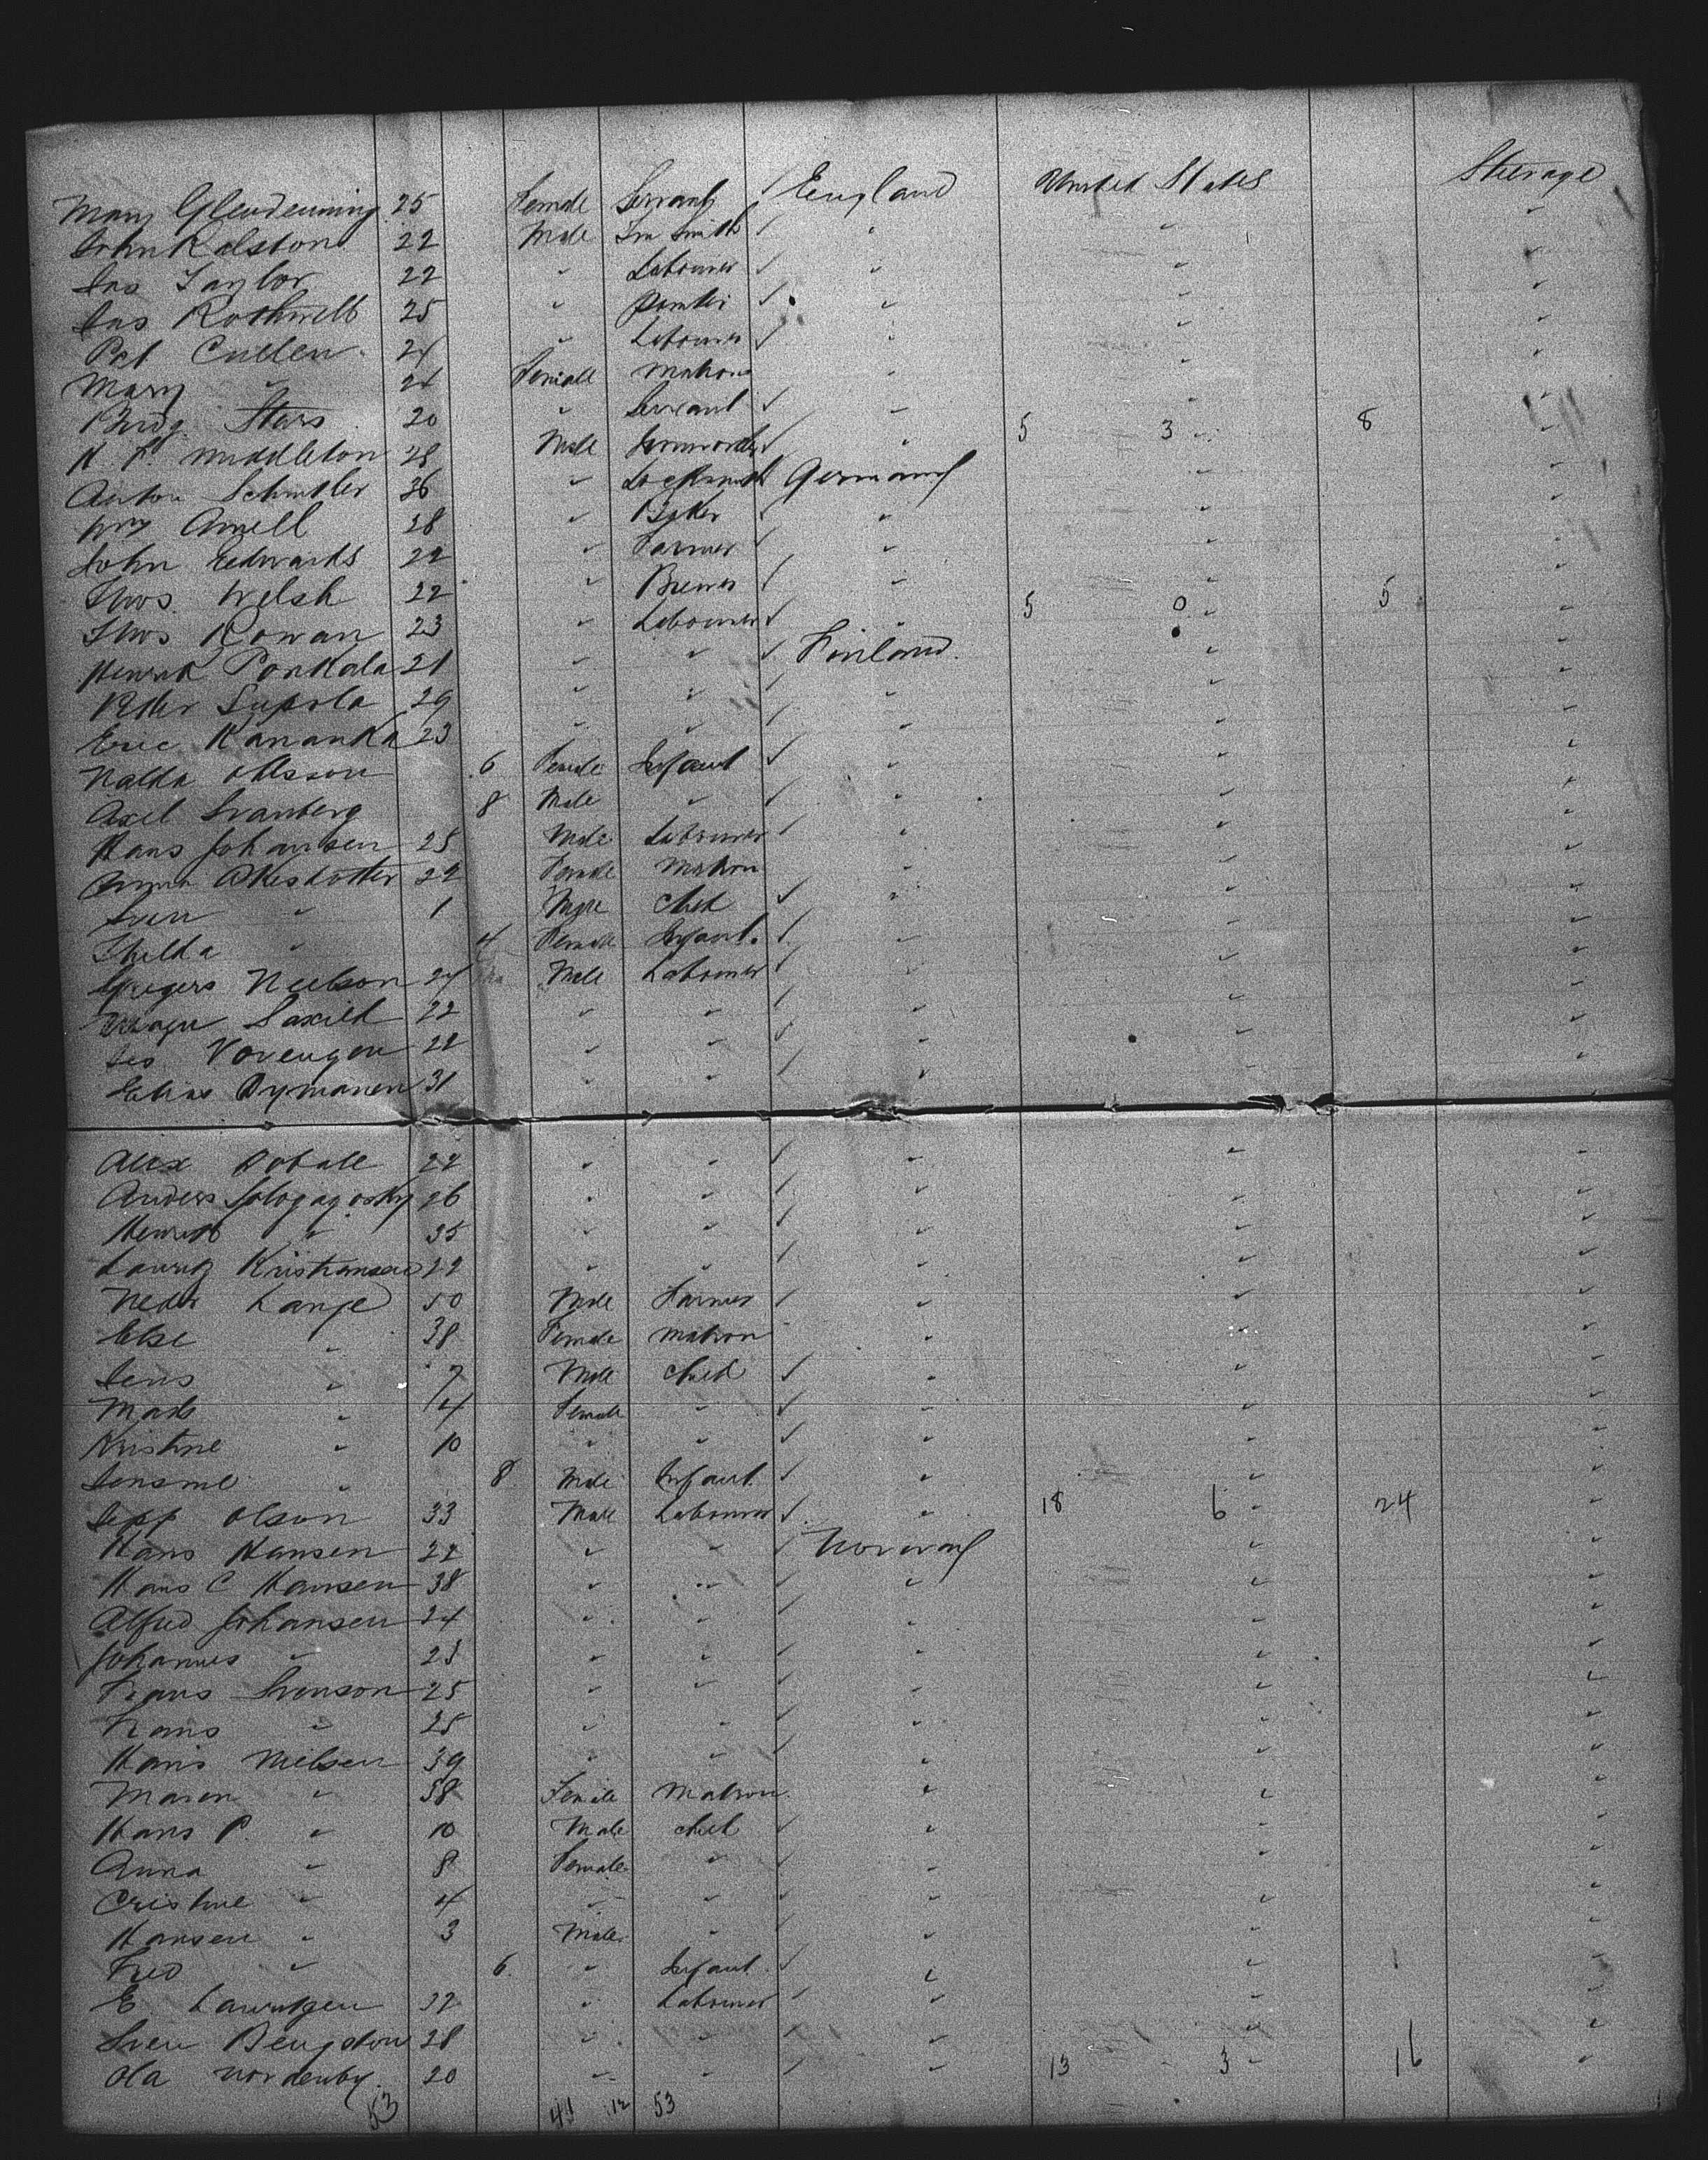 Mary Glendenning 25 Female Servant ✓ England United States Steerage
John Ralston 22 Male Tin Smith ✓ " " "
Jas Taylor 22 " Labourer ✓ " " "
Jas Rothwell 25 " Printer ✓ " " "
Pat Cullen 24 " Labourer ✓ " " "
Mary " 24 Female Matron " " "
Bridg. Stars 20 " Servant ✓ " " "
H. P. Middleton 28 Male Ironworker ✓ " 5 3 " 8 "
Anton Schmitler 36 " Locksmith Germany " "
Wm Amell 28 " Baker ✓ " " "
John Eedwards 22 " Farmer ✓ " " "
Thos. Welsh 22 " Brewer ✓ " " "
Thos Rowan 23 " Labourer ✓ " 5 0 " 5 "
Henrik Ponkala 21 " " ✓ Finland " "
Peter Supola 29 " " ✓ " " "
Eric Kananka 23 " " ✓ " " "
Ohlsson 6 Female Infant ✓ " " "
Axel Svanberg 8 Male " ✓ " " "
Hans Johansen 25 Male Labourer ✓ " " "
Anna Akesdotter 22 Female Matron " " "
Sven " 1 Male Child ✓ " " "
Thilda " 4 Female Infant. ✓ " " "
Gregers Neilson 24 Male Labourer ✓ " " "
Saxild 22 " " ✓ " " "
Jes 22 " " ✓ " " "
Elias Pymanen 31 " " ✓ " " "
Alex 22 " " ✓ " " "
Anders 26 " " ✓ " " "
Henrik " 35 " " ✓ " " "
Lauritz Kristiansen 22 " " ✓ " " "
Lange 50 Male Farmer ✓ " " "
Else " 38 Female Matron " " "
Jens " 7 Male Child ✓ " " "
Mads " 4 Female " ✓ " " "
Kristine " 10 " " ✓ " " "
Jensine " 8 Male Infant ✓ " " "
Jepp Olson 33 Male Labourer ✓ " 18 6 " 24 "
Hans Hansen 22 " " ✓ Norway " "
Hans C Hansen 38 " " ✓ " " "
Alfred Johansen 24 " " ✓ " " "
Johannes " 23 " " ✓ " " "
Frans Svenson 25 " " ✓ " " "
Hans " 25 " " ✓ " " "
Hans Nielsen 39 " " ✓ " " "
Maren " 38 Female Matron " " "
Hans P. " 10 Male Child ✓ " " "
Anna " 8 Female " ✓ " " "
Cristine " 4 " " ✓ " " "
Hansen " 3 Male " ✓ " " "
Fred " 6 " Infant ✓ " " "
E Lauritzen 32 " Labourer ✓ " " "
Sven Bengston 28 " " ✓ " " "
Ola Nordenby. 20 " " ✓ " 13 3 " 16 "
53 41 12 53